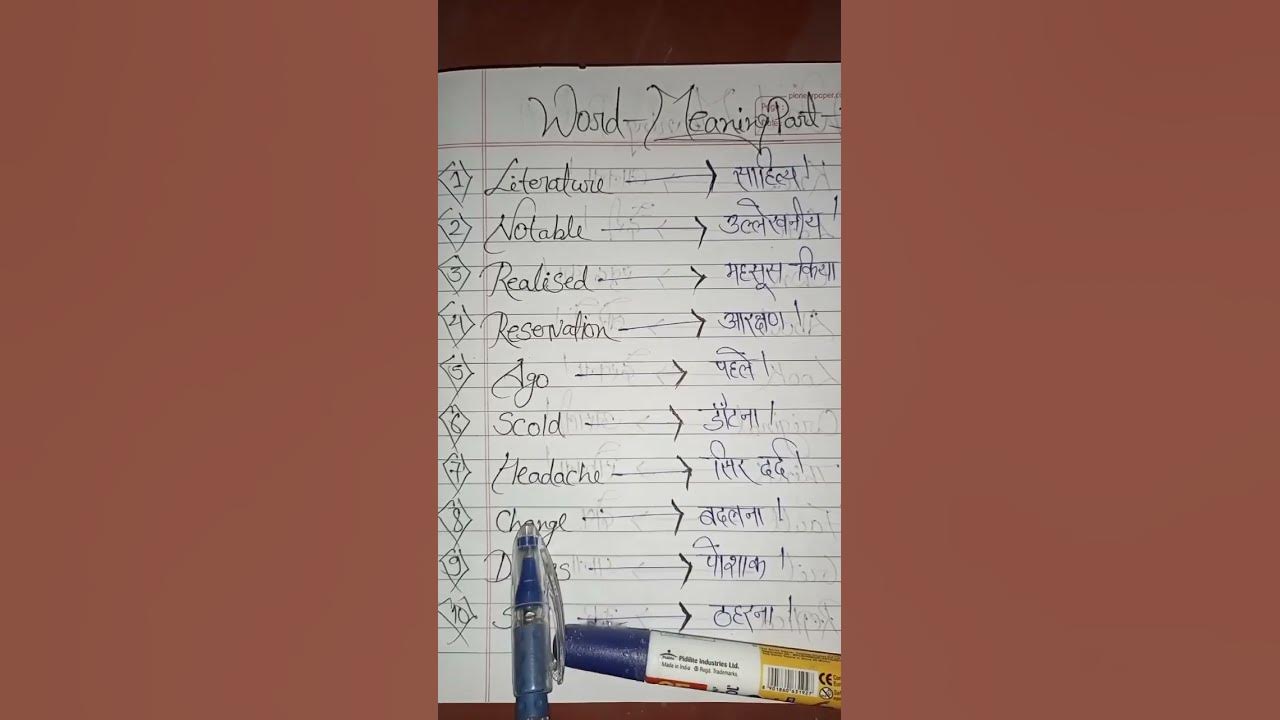 pioneerpaper.co
Word-Meaning Part-
1 Literature → साहित्य।
2 Notable → उल्लेखनीय।
3 Realised → महसूस किया
4 Reservation → आरक्षण।
5 Ago → पहले।
6 Scold → डाँटना।
7 Headache → सिर दर्द।
8 Change → बदलना।
9 → पोशाक।
10 → ठहरना।
Pidilite Industries Ltd.
Made in India ® Regd. Trademarks.
CE